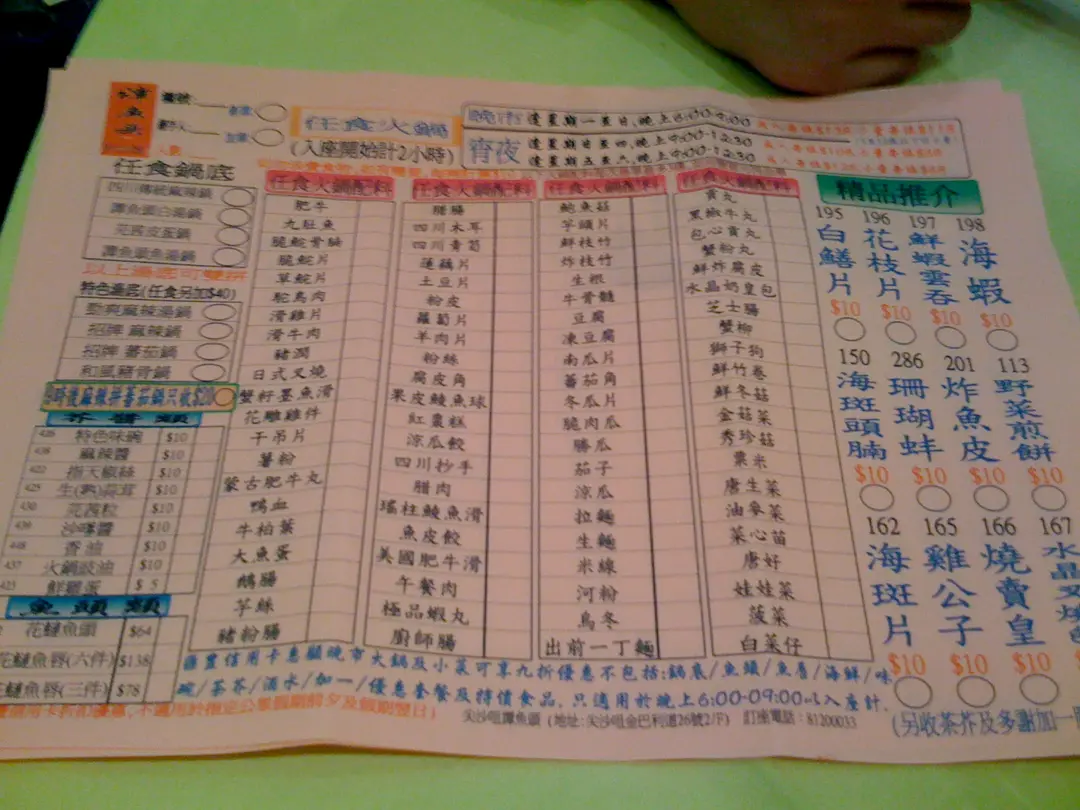 譚魚頭
檯號:
人數:
任食火鍋
(入座開始計2小時)
晚市 逢星期一至日,晚上6:00-9:00
宵夜 逢星期日至四,晚上9:00-12:30
逢星期五至六,晚上9:00-12:30
任食鍋底
四川傳統麻辣鍋
譚魚頭白湯鍋
芫茜皮蛋鍋
譚魚頭魚湯鍋
以上湯底可雙拼
特色湯底(任食另加$40)
勁爽麻辣湯鍋
招牌 麻辣鍋
招牌 蕃茄鍋
和風豬骨鍋
9時後麻辣拼蕃茄鍋只收$20
茶醬類
426 特色味碗 $10
438 麻辣醬 $10
422 指天椒絲 $10
425 生(熟)蒜茸 $10
430 芫茜粒 $10
439 沙嗲醬 $10
448 香油 $10
437 火鍋豉油 $10
423 鮮雞蛋 $ 5
魚頭類
花鰱魚頭 $64
花鰱魚唇(六件) $138
花鰱魚唇(三件) $78
任食火鍋配料
肥牛
九肚魚
脆鯇骨腩
脆鯇片
草鯇片
鴕鳥肉
滑雞片
滑牛肉
豬潤
日式叉燒
蟹籽墨魚滑
花雕雞件
干吊片
薯粉
蒙古肥牛丸
鴨血
牛柏葉
大魚蛋
鵝腸
芋絲
豬粉腸
任食火鍋配料
腊腸
四川木耳
四川青筍
蓮藕片
土豆片
粉皮
蘿蔔片
羊肉片
粉絲
腐皮角
果皮鯪魚球
紅棗糕
涼瓜餃
四川抄手
腊肉
瑤柱鯪魚滑
魚皮餃
美國肥牛滑
午餐肉
極品蝦丸
廚師腸
任食火鍋配料
鮑魚菇
芋頭片
鮮枝竹
炸枝竹
生根
牛骨髓
豆腐
凍豆腐
南瓜片
蕃茄角
冬瓜片
脆肉瓜
勝瓜
茄子
涼瓜
拉麵
生麵
米線
河粉
烏冬
出前一丁麵
任食火鍋配料
貢丸
黑椒牛丸
包心貢丸
蟹粉丸
鮮炸腐皮
水晶奶皇包
芝士腸
蟹柳
獅子狗
鮮竹卷
鮮冬菇
金菇菜
秀珍菇
粟米
唐生菜
油麥菜
菜心苗
唐好
娃娃菜
菠菜
白菜仔
精品推介
195 白鱔片 $10
196 花枝片 $10
197 鮮蝦雲吞 $10
198 海蝦 $10
150 海斑頭腩 $10
286 珊瑚蚌 $10
201 炸魚皮 $10
113 野菜煎餅 $10
162 海斑片 $10
165 雞公子 $10
166 燒賣皇 $10
167 水晶叉燒包 $10
滙豐信用卡惠顧晚市火鍋及小菜可享九折優惠不包括:鍋底/魚頭/魚唇/海鮮/味
碗/茶芥/酒水/加一/優惠套餐及特價食品, 只適用於晚上6:00-09:00以入座計.
尖沙咀譚魚頭 (地址:尖沙咀金巴利道26號2/F) 訂座電話:81200033
(另收茶芥及多謝加一